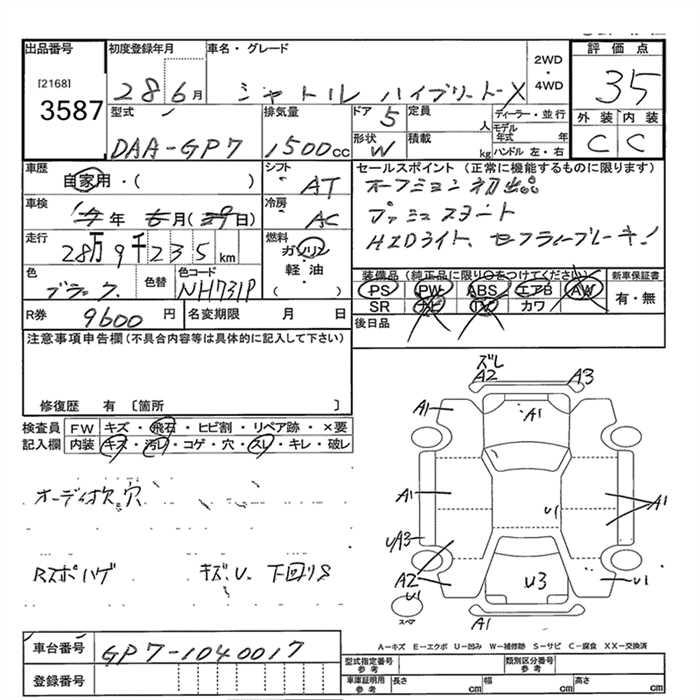 出品番号 初度登録年月 車名・グレード 評価点
[2168]
3587
28 6月 シャトル ハイブリッド X
2WD
・
4WD
35
型式 排気量 ドア 5 定員 人 ディーラー・並行
外装 内装
C C
DAA-GP7 1500cc
形状 W 積載 kg モデル年式 年
ハンドル 左・右
車歴 シフト セールスポイント (正常に機能するものに限ります)
自家用・( ) AT
オークション 初出品
車検 冷房
年 月( 日) AC
プッシュスタート
走行 燃料
28万9千235km ガソリン
HIDライト、
軽・油
( )
色 色替 色コード
ブラック NH731P
装備品 (純正品に限り○をつけてください) 新車保証書
PS PW ABS エアB AW 有・無
SR ナビ TV カワ
R券 9600円 名変期限 月 日
後日品
注意事項申告欄(不具合内容等は具体的に記入して下さい)
修復歴 有 〔箇所 〕
検査員 FW キズ・飛石・ヒビ割・リペア跡・×要
記入欄 内装 キズ・汚レ・コゲ・穴・スレ・キレ・破レ
オーディオ欠.穴
Rスポハゲ キズ、U. 下回りS
ズレ
A2 A3
A1 A1
A1 U1 A1
UA3
A2 U3 U1
U1
スペア
A1
A-キズ E-エクボ U-凹み W-補修跡 S-サビ C-腐食 XX-交換済
車台番号 GP7-1040017
登録番号
型式指定番号 参考 類別区分番号 参考
車庫証明用 参考 長さ cm 幅 cm 高さ cm